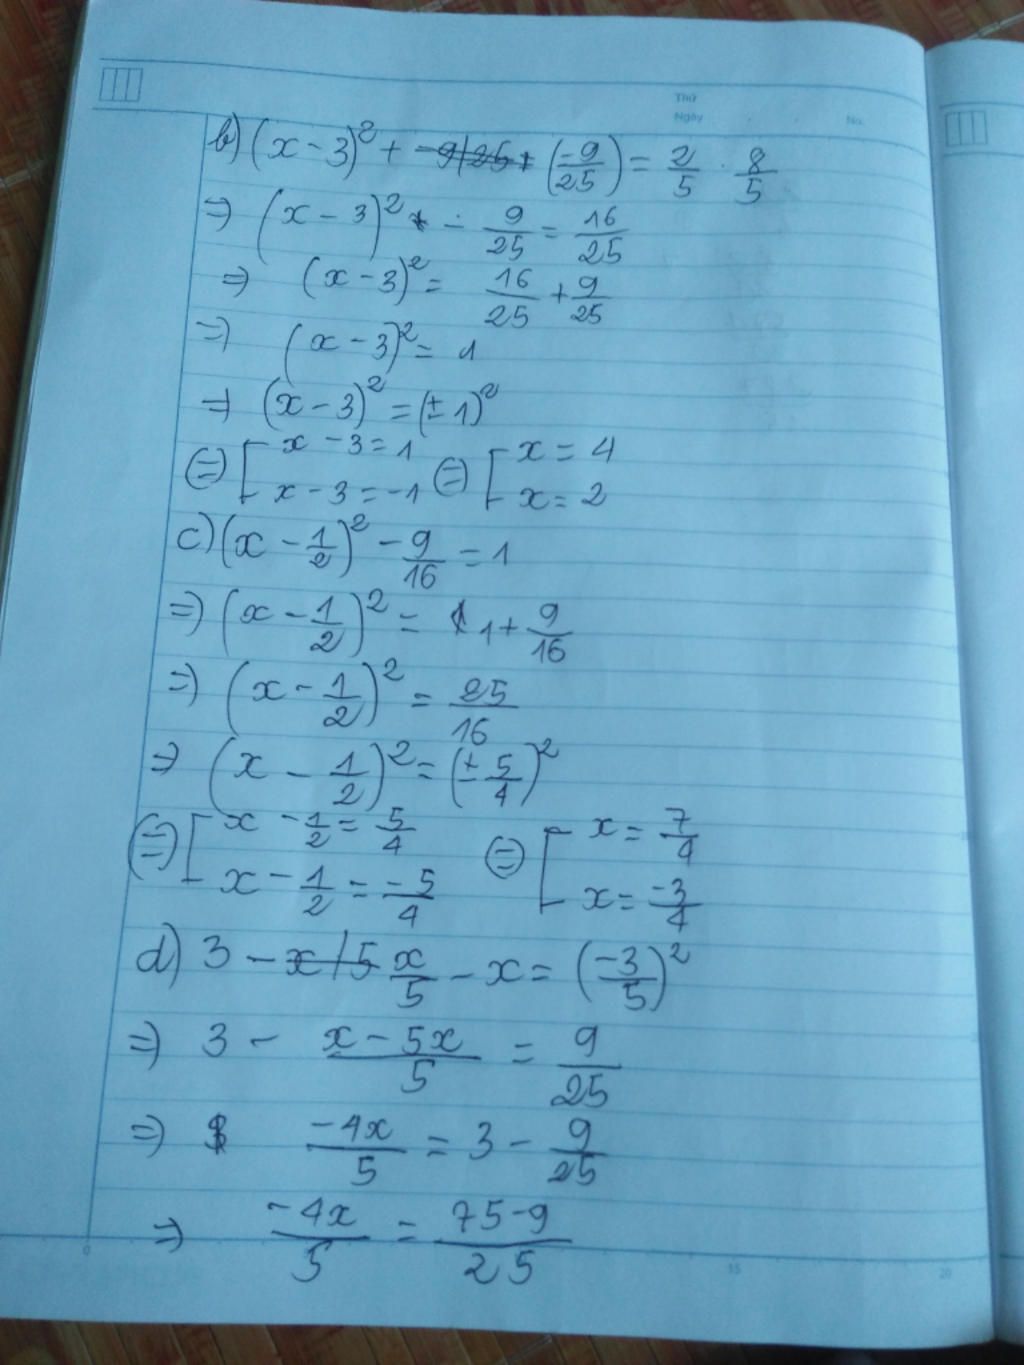 Thứ
Ngày No.
b) (x - 3)² + (-9/25) = 2/5 . 8/5
=> (x - 3)² - 9/25 = 16/25
=> (x - 3)² = 16/25 + 9/25
=> (x - 3)² = 1
=> (x - 3)² = (± 1)²
(=) [ x - 3 = 1 (=) [ x = 4
x - 3 = -1 x = 2
c) (x - 1/2)² - 9/16 = 1
=> (x - 1/2)² = 1 + 9/16
=> (x - 1/2)² = 25/16
=> (x - 1/2)² = (± 5/4)²
(=) [ x - 1/2 = 5/4 (=) [ x = 7/4
x - 1/2 = -5/4 x = -3/4
d) 3 - x/5 - x = (-3/5)²
=> 3 - x - 5x/5 = 9/25
=> -4x/5 = 3 - 9/25
=> -4x/5 = 75-9/25
0 15 20